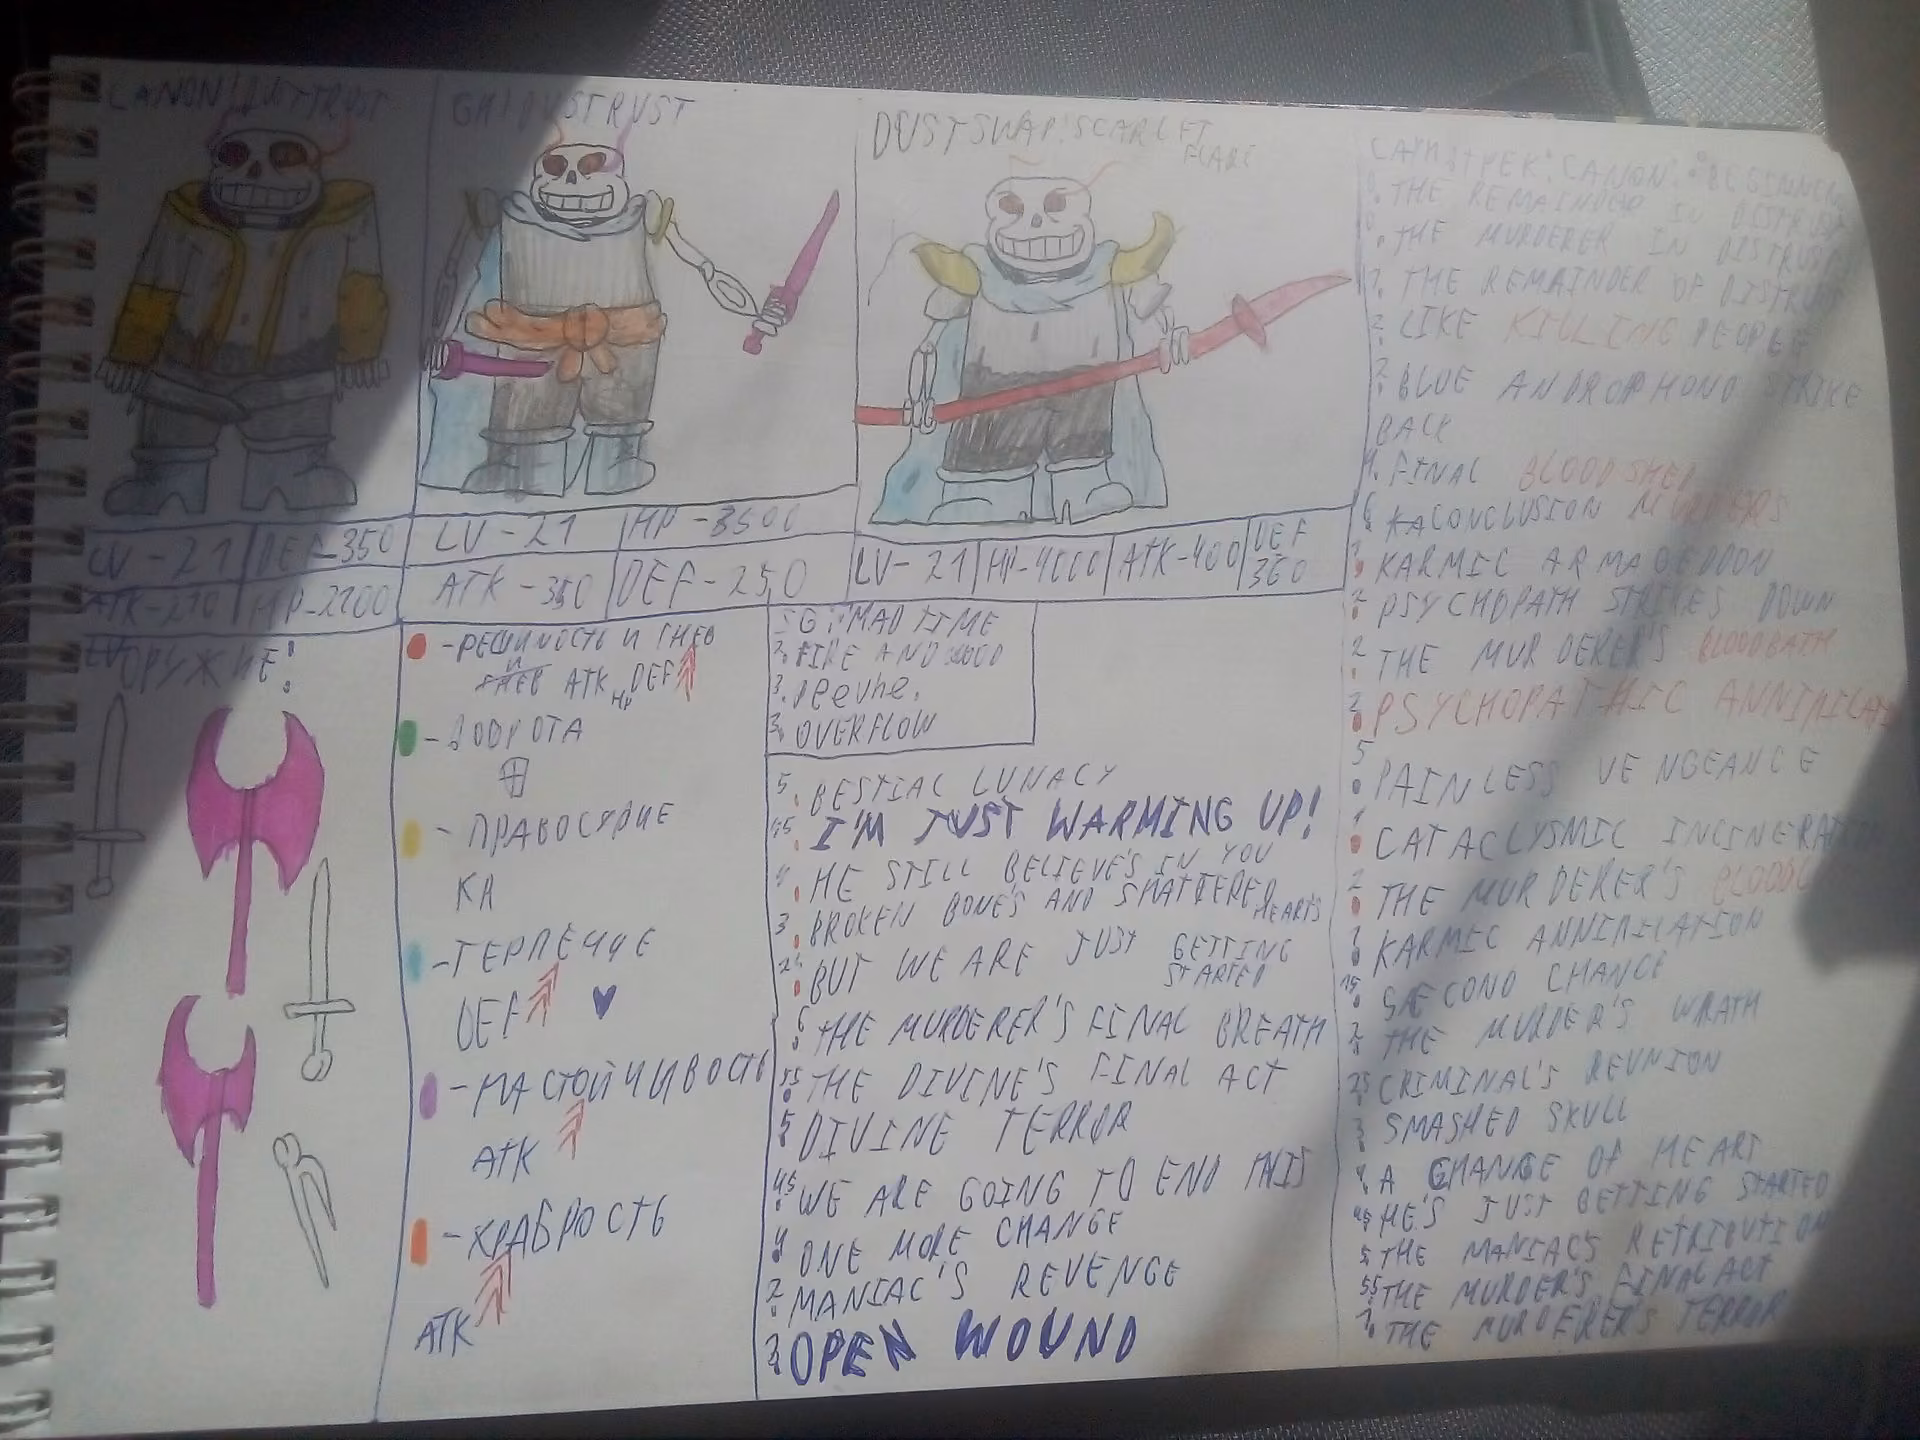 GH!DUSTRUST
DUSTSWAP:SCARLET
FLARE
LV-21
DEF-350
HP-2100
LV-21
HP-3500
ATK-350
DEF-250
LV-21
HP-4000
ATK-400
DEF
360
ОРУЖИЕ:
-РЕШИМОСТЬ И ГНЕВ
ATK HP DEF
-ДОБРОТА
-ПРАВОСУДИЕ
КА
-ТЕРПЕНИЕ
DEF
-НАСТОЙЧИВОСТЬ
ATK
-ХРАБРОСТЬ
ATK
MAD TIME
FIRE AND
OVERFLOW
5. BESTIAL LUNACY
I'M JUST WARMING UP!
HE STILL BELIEVE'S IN YOU
3. BROKEN BONE'S AND SHATTERED
HEARTS
BUT WE ARE JUST GETTING
STARTED
6. THE MURDERER'S FINAL BREATH
THE DIVINE'S FINAL ACT
5. DIVINE TERROR
WE ARE GOING TO END THIS
4. ONE MORE CHANGE
2. MANIAC'S REVENGE
OPEN WOUND
CANON:
THE REMAINDED IN DISTRUST
THE MURDERER IN DISTRUST
THE REMAINDER OF DISTRUST
2. LIKE KILLING PEOPLE
2. BLUE ANDROPHONO STRIKE
BACK
FINAL BLOODSHED
KACONCLUSION
KARMIC ARMAGEDDON
2. PSYCHOPATH STRIKES DOWN
2. THE MURDERER'S BLOODBATH
2. PSYCHOPATHIC
5. PAINLESS VENGEANCE
CATACLYSMIC
2. THE MURDERER'S
KARMIC ANNIHILATION
SECOND CHANCE
2. THE MURDER'S WRATH
CRIMINAL'S REUNION
3. SMASHED SKULL
4. A CHANGE OF HEART
HE'S JUST GETTING STARTED
5. THE MANIAC'S RETRIBUTION
THE MURDER'S FINAL ACT
THE MURDERER'S TERROR